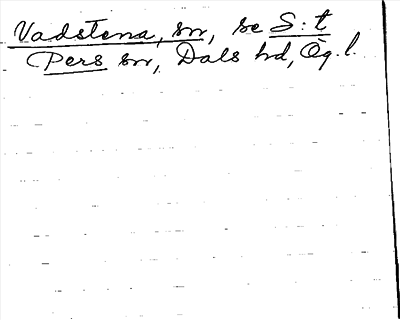 Vadstena, sn, se S:t
Pers sn, Dals hd, Ög. l.